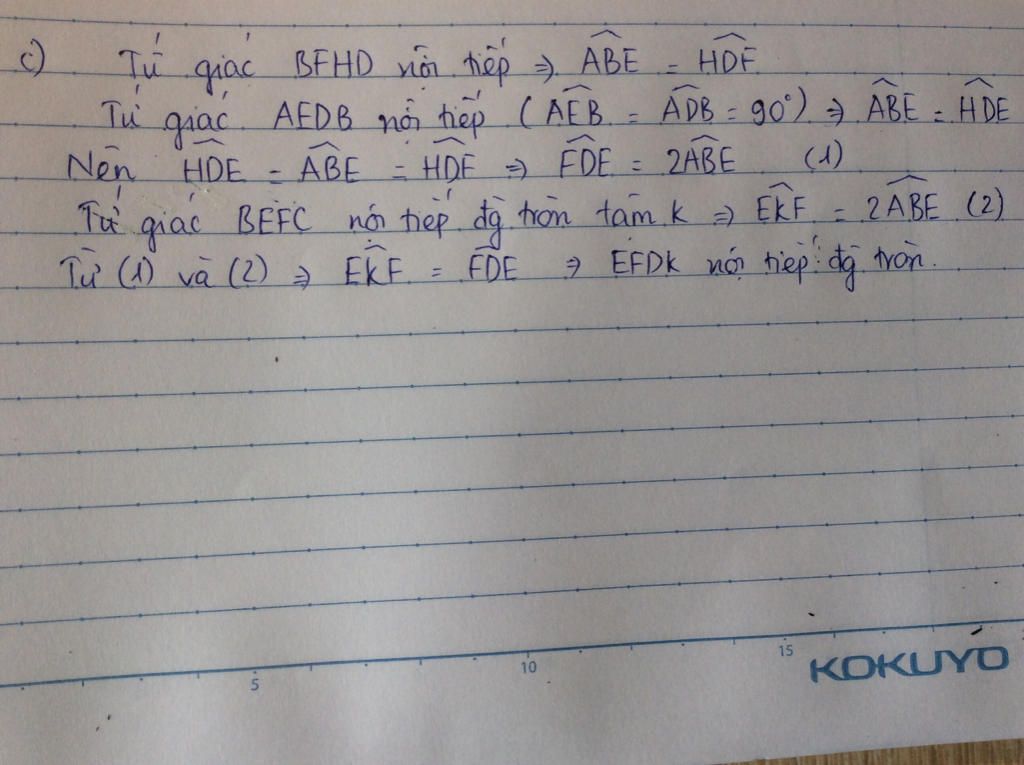 c) Tứ giác BFHD nội tiếp ⇒ \widehat{ABE} = \widehat{HDF}
Tứ giác AEDB nội tiếp (\widehat{AEB} = \widehat{ADB} = 90°) ⇒ \widehat{ABE} = \widehat{HDE}
Nên \widehat{HDE} = \widehat{ABE} = \widehat{HDF} ⇒ \widehat{FDE} = 2\widehat{ABE} (1)
Tứ giác BEFC nội tiếp đg tròn tâm K ⇒ \widehat{EKF} = 2\widehat{ABE} (2)
Từ (1) và (2) ⇒ \widehat{EKF} = \widehat{FDE} ⇒ EFDK nội tiếp đg tròn.
5 10 15 KOKUYO